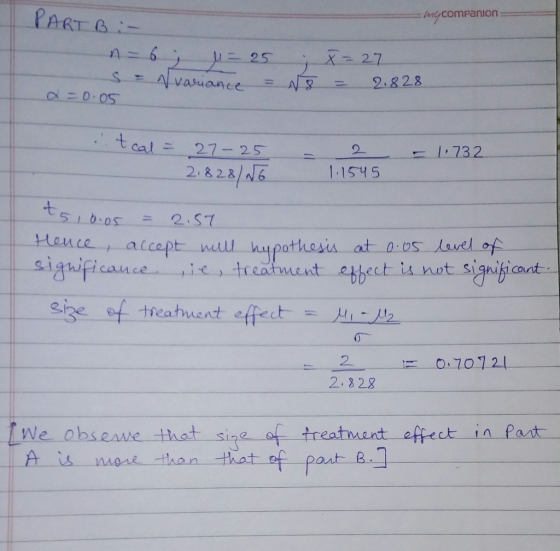 companion
PART B :-
n = 6 ; μ = 25 ; x̄ = 27
s = √variance = √8 = 2.828
α = 0.05
∴ t cal = 27 - 25 / 2.828/√6 = 2 / 1.1545 = 1.732
t5, 0.05 = 2.57
Hence, accept null hypothesis at 0.05 level of
significance. , i.e, treatment effect is not significant.
size of treatment effect = μ1 - μ2 / σ
= 2 / 2.828 = 0.70721
[We observe that size of treatment effect in Part
A is more than that of part B.]